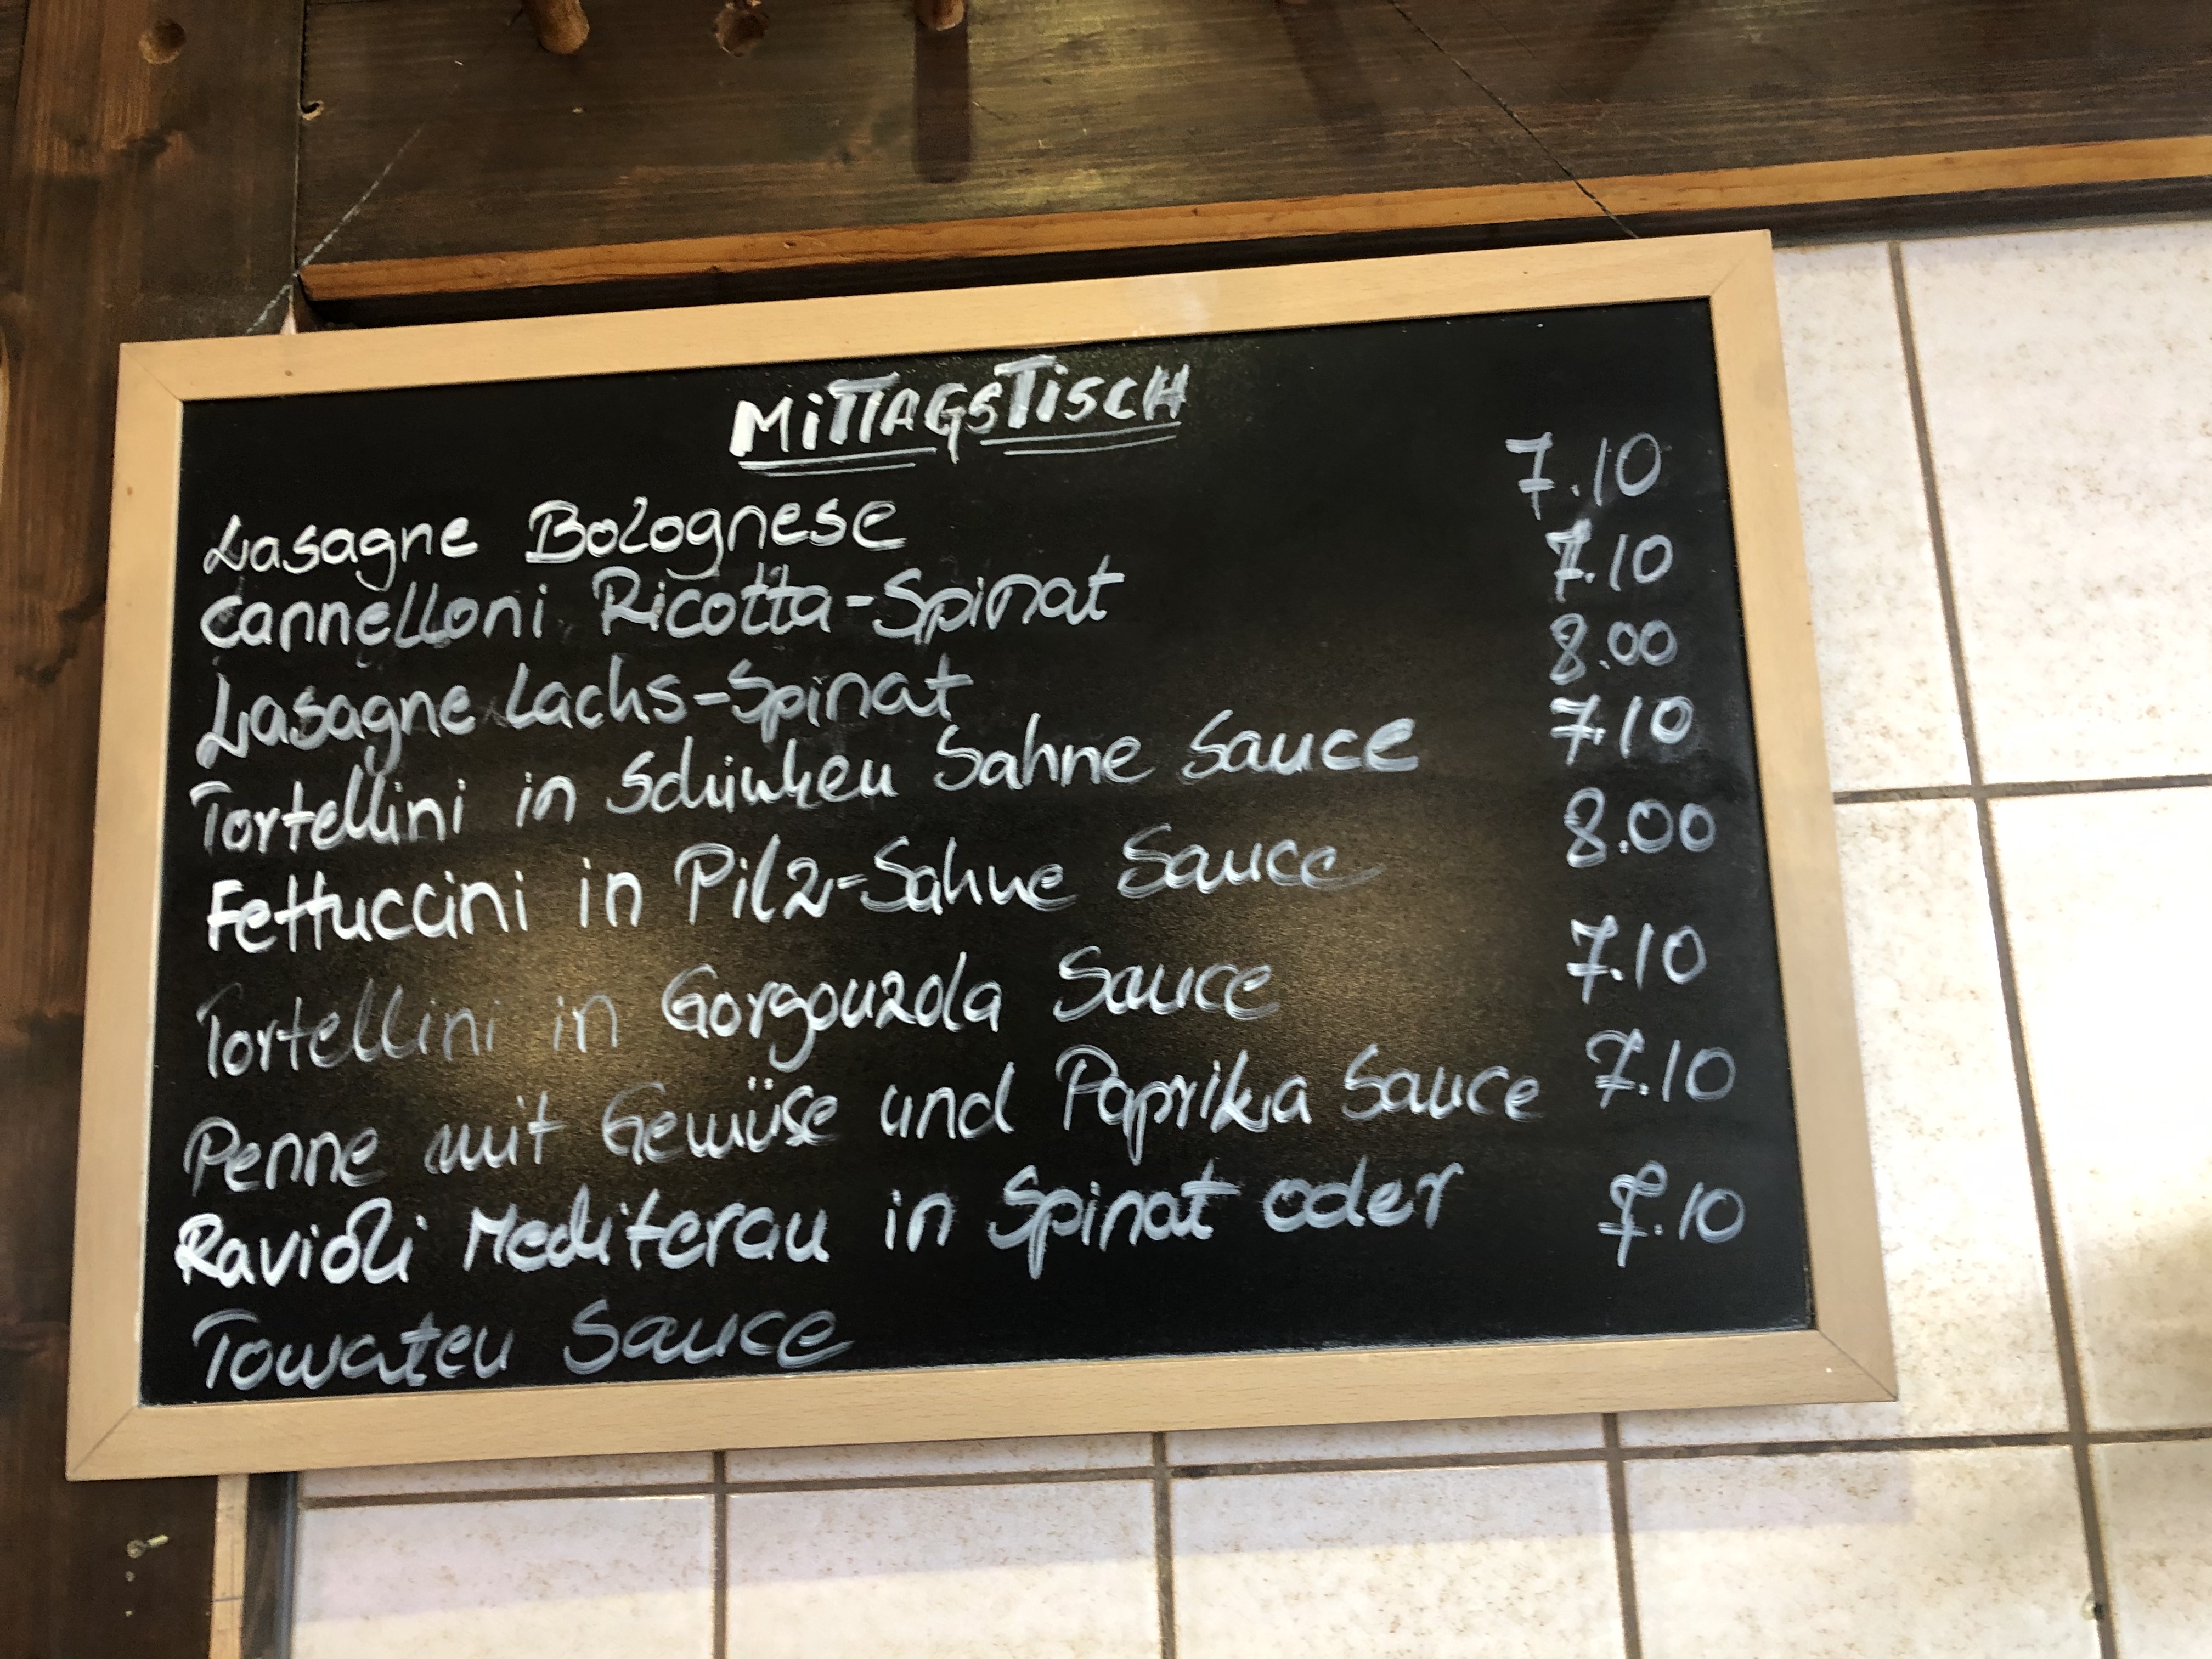 MiTTAGSTiSCH
Lasagne Bolognese 7.10
Cannelloni Ricotta-Spinat 7.10
Lasagne Lachs-Spinat 8.00
Tortellini in Schinken Sahne Sauce 7.10
Fettuccini in Pilz-Sahne Sauce 8.00
Tortellini in Gorgonzola Sauce 7.10
Penne mit Gemüse und Paprika Sauce 7.10
Ravioli Mediteran in Spinat oder 7.10
Tomaten Sauce